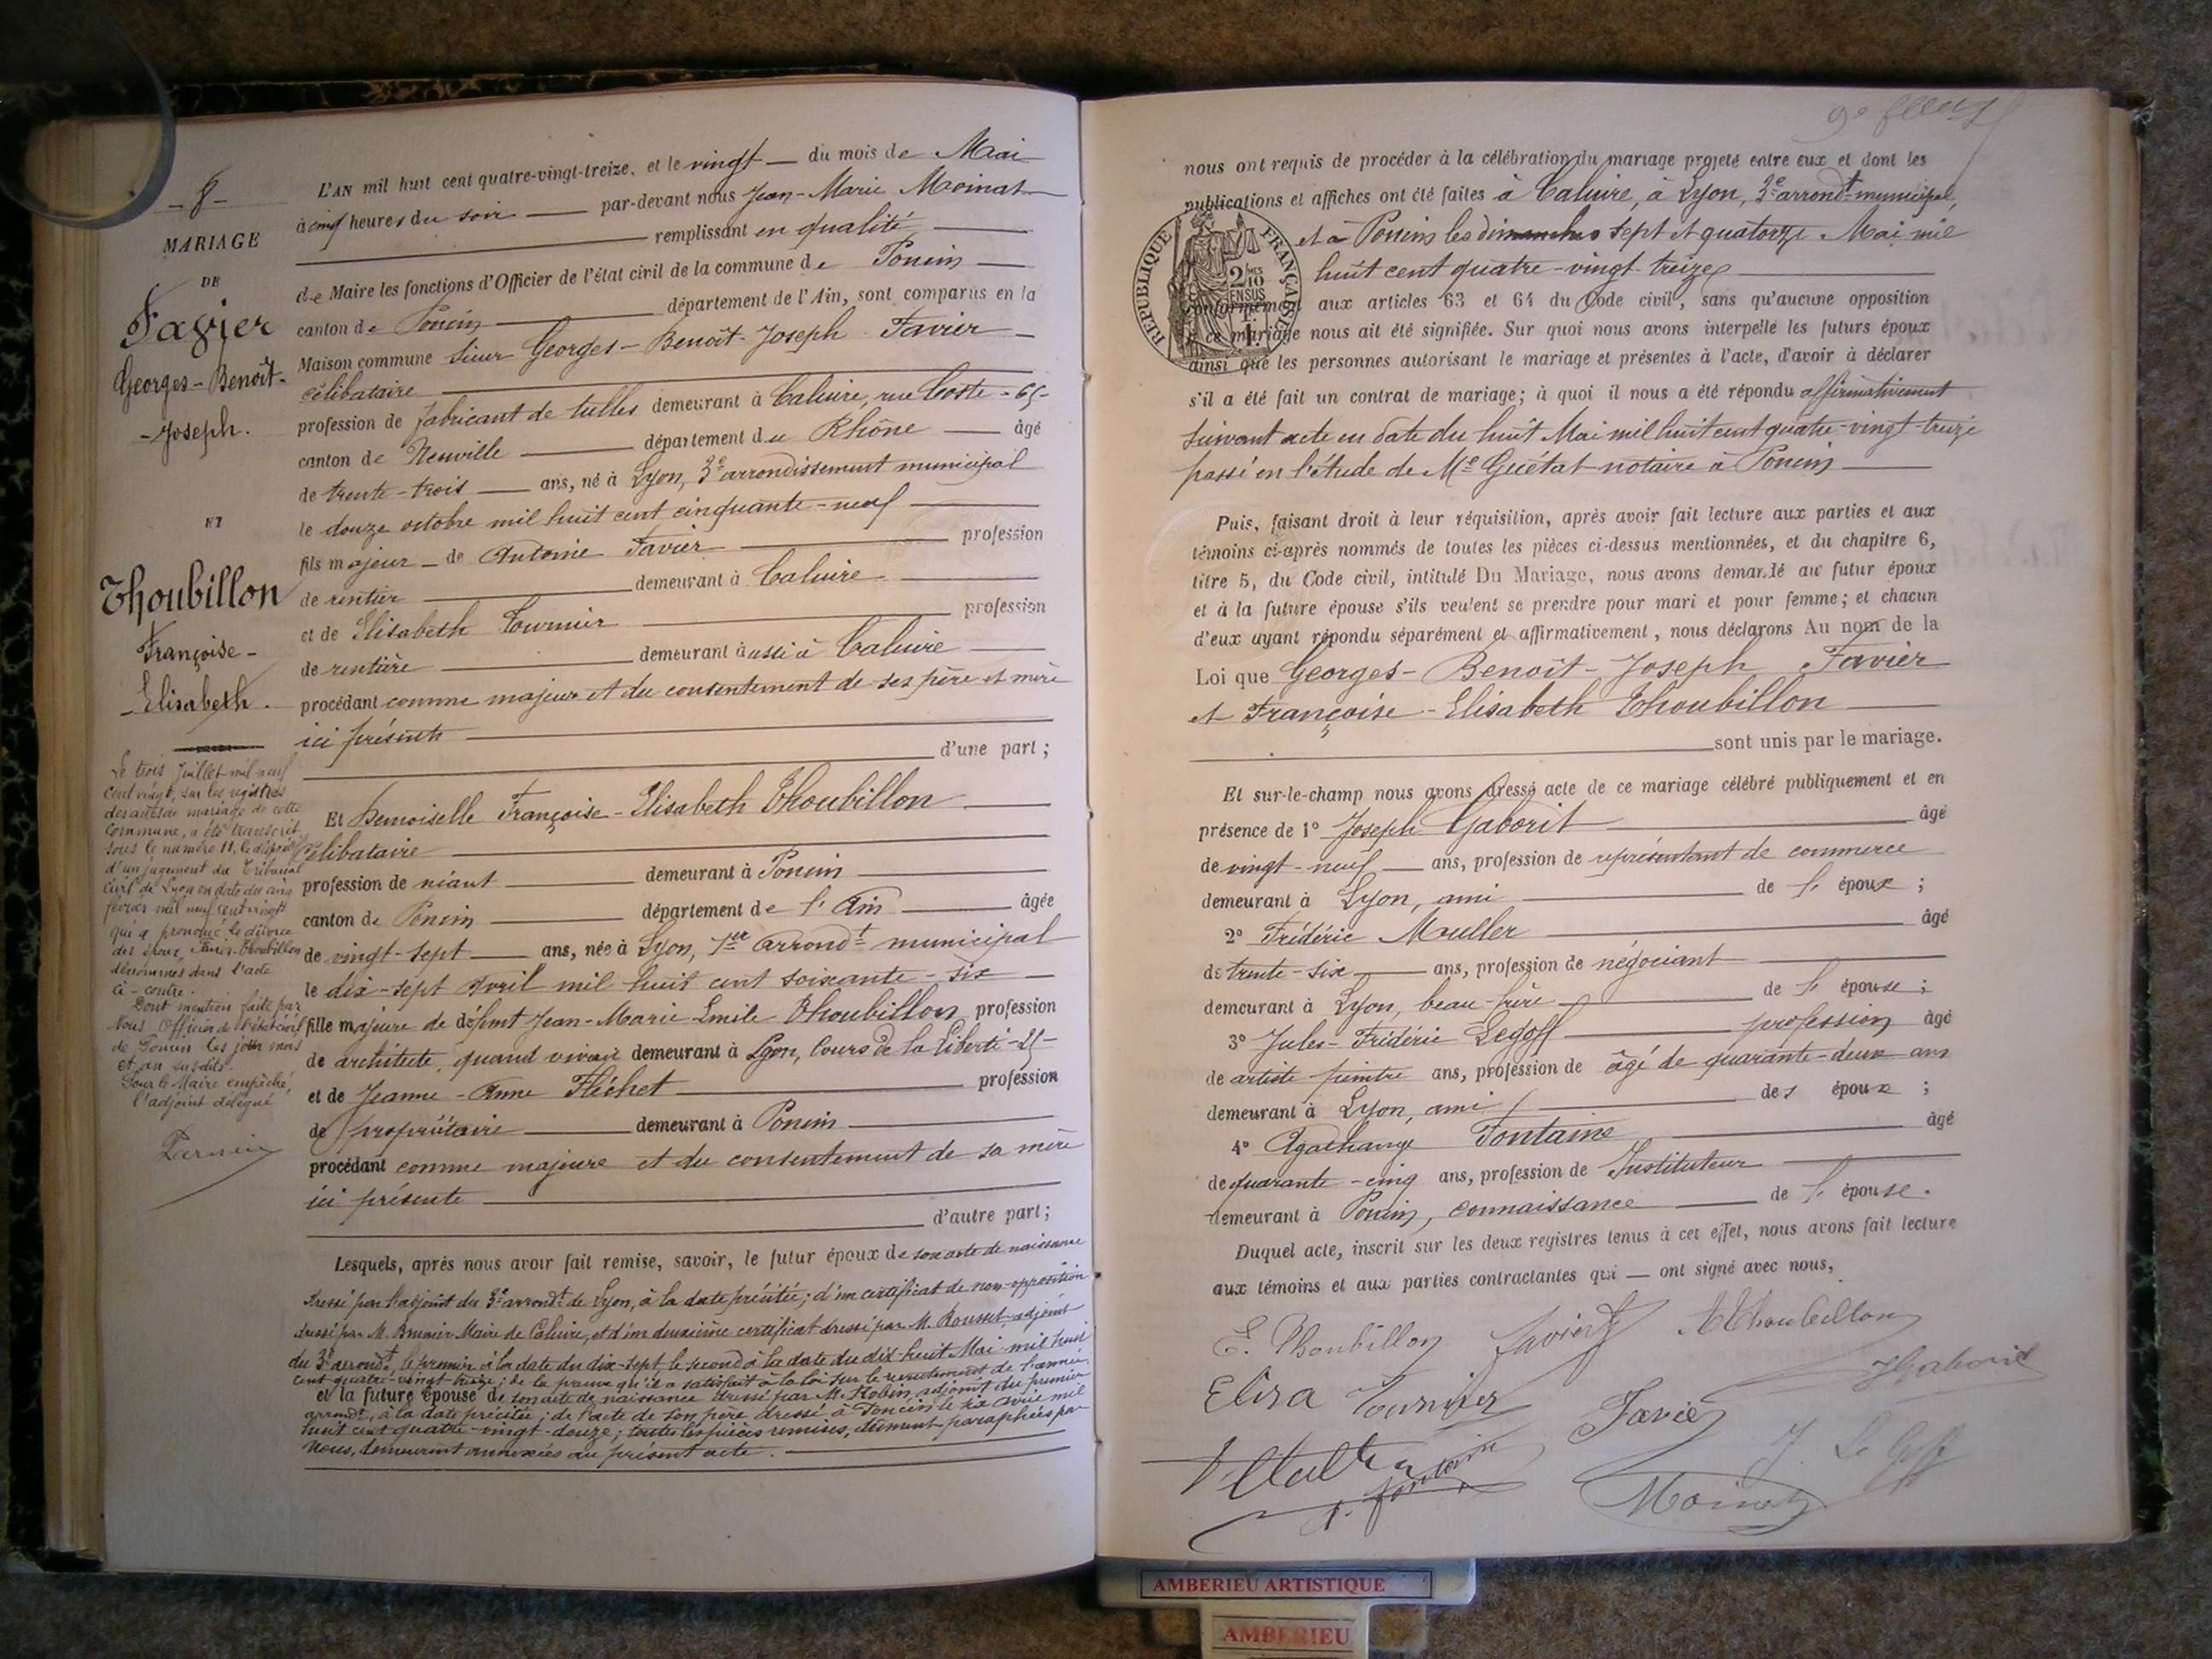 - 8 -
MARIAGE
DE
Favier
Georges - Benoît -
- Joseph.
ET
Thoubillon
Françoise -
- Elisabeth.
Le trois Juillet mil neuf
cent vingt, sur les registres
des actes de mariage de cette
Commune, a été transcrit
sous le numéro 11, le dispositif
d'un jugement du Tribunal
civil de Lyon en date du cinq
février mil neuf cent vingt
qui a prononcé le divorce
des époux Favier-Thoubillon
dénommés dans l'acte
ci-contre.
Dont mention faite par
Nous Officier de l'état civil
de Poncin les jour mois
et an susdits.
Pour le Maire empêché,
l'adjoint délégué
L'AN mil huit cent quatre-vingt-treize, et le vingt du mois de Mai
à cinq heures du soir par-devant nous Jean-Marie Moinat
remplissant en qualité
de Maire les fonctions d'Officier de l'état civil de la commune de Poncin
canton de Poncin département de l'Ain, sont comparus en la
Maison commune Sieur Georges - Benoît - Joseph Favier
célibataire
profession de fabricant de tulles demeurant à Caluire, rue Coste - 65 -
canton de Neuville département du Rhône âgé
de trente-trois ans, né à Lyon, 3e arrondissement municipal
le douze octobre mil huit cent cinquante-neuf
fils majeur de Antoine Favier profession
de rentier demeurant à Caluire
et de Elisabeth Tournier profession
de rentière demeurant aussi à Caluire
procédant comme majeur et du consentement de ses père et mère
ici présents
d'une part ;
Et Demoiselle Françoise - Elisabeth Thoubillon
célibataire
profession de néant demeurant à Poncin
canton de Poncin département de l'Ain âgée
de vingt-sept ans, née à Lyon, 1er arrondt municipal
le dix-sept Avril mil huit cent soixante-six
fille majeure de défunt Jean-Marie Emile Thoubillon profession
de architecte, quand vivait demeurant à Lyon, Cours de la Liberté
et de Jeanne - Anne Fléchet profession
de propriétaire demeurant à Poncin
procédant comme majeure et du consentement de sa mère
ici présente
d'autre part ;
Lesquels, après nous avoir fait remise, savoir, le futur époux de son acte de naissance
dressé par l'adjoint du 3e arrondt de Lyon, à la date précitée ; d'un certificat de non-opposition
dressé par M. Brunier Maire de Caluire, et d'un deuxième certificat dressé par M. Rousset adjoint
du 3e arrondt, le premier à la date du dix-sept, le second à la date du dix-huit Mai mil huit
cent quatre-vingt-treize ; de la preuve qu'il a satisfait à la loi sur le recrutement de l'armée,
et la future épouse de son acte de naissance dressé par M. Robin, adjoint du premier
arrondt, à la date précitée ; de l'acte de son père dressé à Poncin le six Avril mil
huit cent quatre-vingt-douze ; toutes les pièces remises, dûment paraphées par
nous, demeurent annexées au présent acte.
nous ont requis de procéder à la célébration du mariage projeté entre eux et dont les
publications et affiches ont été faites à Caluire, à Lyon, 3e arrondt municipal,
et à Poncin les dimanches sept et quatorze Mai mil
huit cent quatre-vingt-treize
conformément aux articles 63 et 64 du Code civil, sans qu'aucune opposition
à ce mariage nous ait été signifiée. Sur quoi nous avons interpellé les futurs époux
ainsi que les personnes autorisant le mariage et présentes à l'acte, d'avoir à déclarer
s'il a été fait un contrat de mariage ; à quoi il nous a été répondu affirmativement
suivant acte en date du huit Mai mil huit cent quatre-vingt-treize
passé en l'étude de Me Guétat notaire à Poncin
RÉPUBLIQUE FRANÇAISE
2/10 EN SUS
Puis, faisant droit à leur réquisition, après avoir fait lecture aux parties et aux
témoins ci-après nommés de toutes les pièces ci-dessus mentionnées, et du chapitre 6,
titre 5, du Code civil, intitulé Du Mariage, nous avons demandé au futur époux
et à la future épouse s'ils veulent se prendre pour mari et pour femme ; et chacun
d'eux ayant répondu séparément et affirmativement, nous déclarons Au nom de la
Loi que Georges - Benoît - Joseph Favier
et Françoise - Elisabeth Thoubillon
sont unis par le mariage.
Et sur-le-champ nous avons dressé acte de ce mariage célébré publiquement et en
présence de 1° Joseph Gaborit âgé
de vingt-neuf ans, profession de représentant de commerce
demeurant à Lyon, ami de l'époux ;
2° Frédéric Muller âgé
de trente-six ans, profession de négociant
demeurant à Lyon, beau-frère de l'épouse ;
3° Jules - Frédéric Legoff profession âgé
de artiste peintre ans, profession de âgé de quarante-deux ans
demeurant à Lyon, ami des époux ;
4° Agathange Fontaine âgé
de quarante-cinq ans, profession de Instituteur
demeurant à Poncin, connaissance de l'épouse.
Duquel acte, inscrit sur les deux registres tenus à cet effet, nous avons fait lecture
aux témoins et aux parties contractantes qui ont signé avec nous,
E. Thoubillon Favier Thoubillon
Elisa Tournier Favier J Gaborit
A. Fontaine Moinat J. Le Goff
AMBERIEU ARTISTIQUE
AMBERIEU